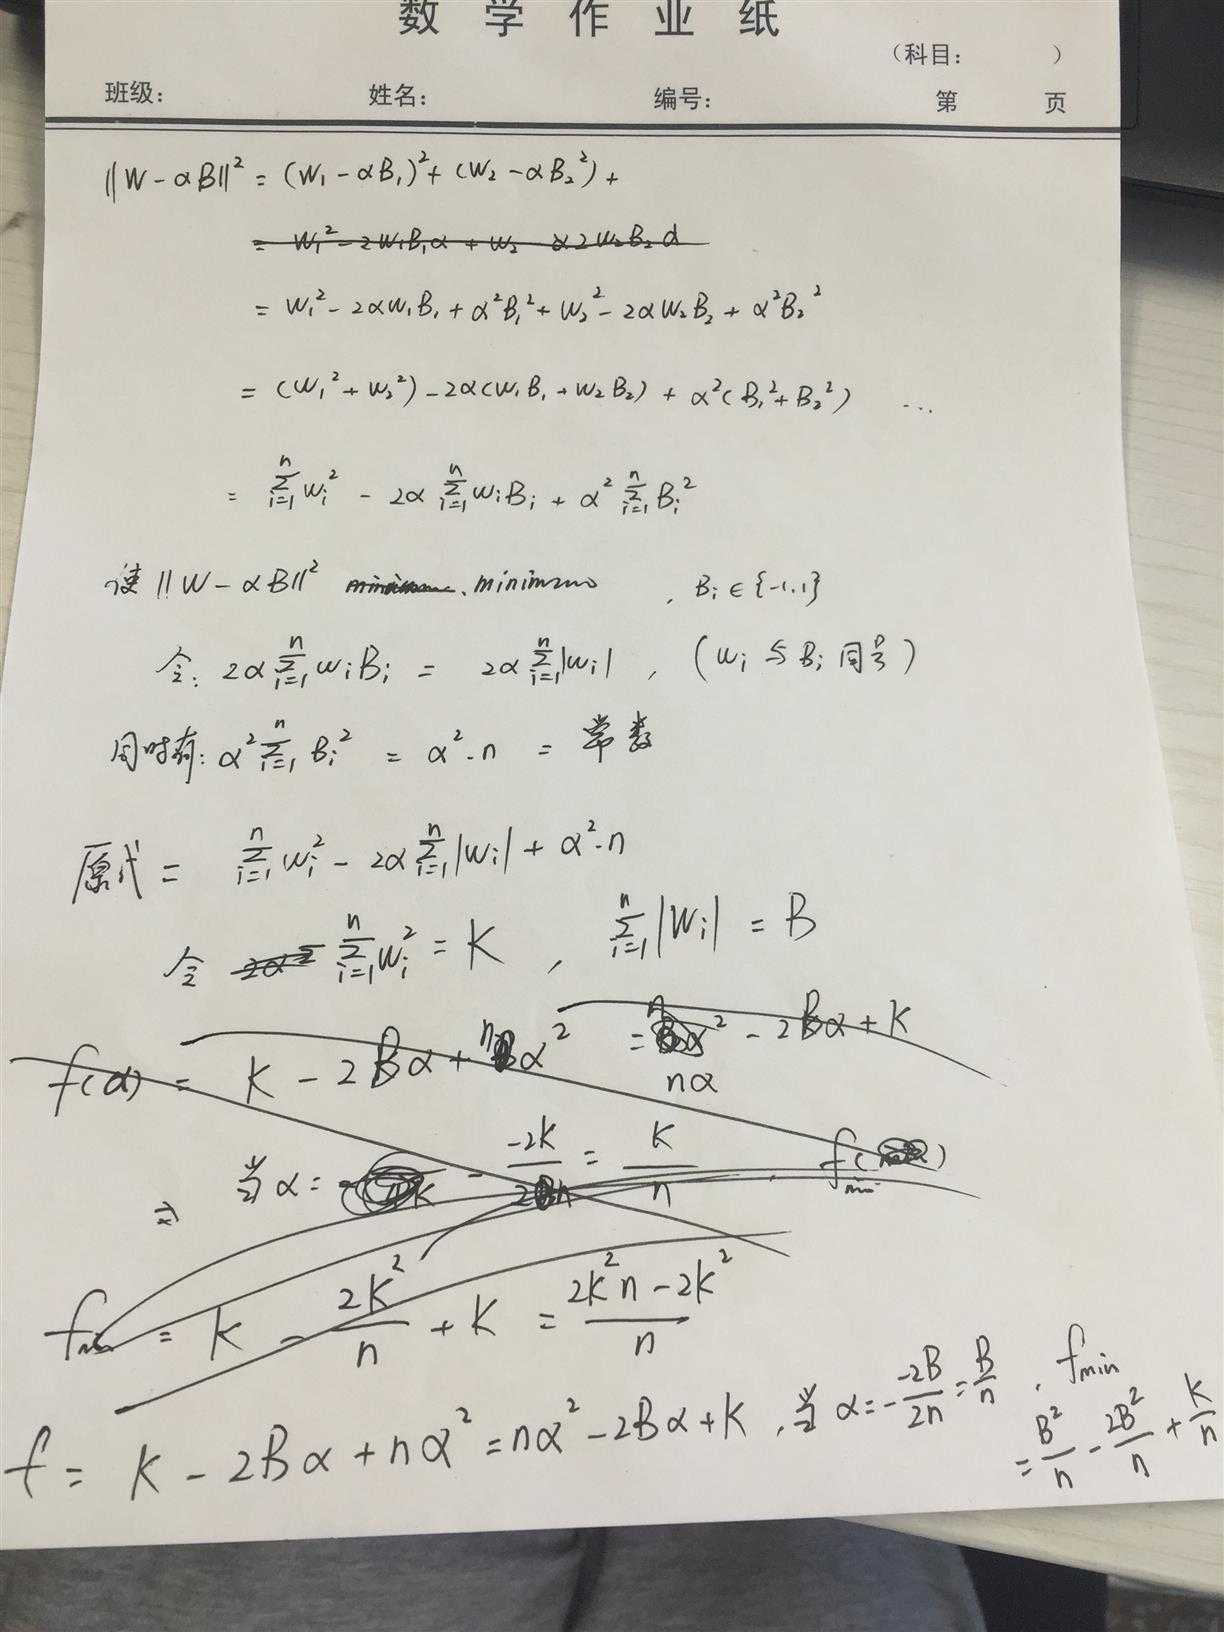 数学作业纸
（科目： ）
班级： 姓名： 编号： 第 页
‖W-αB‖² = (W₁-αB₁)²+(W₂-αB₂²)+
= W₁²-2W₁B₁α+W₂ α2W₂B₂α
= W₁²-2αW₁B₁+α²B₁²+W₂²-2αW₂B₂+α²B₂²
= (W₁²+W₂²)-2α(W₁B₁+W₂B₂)+α²(B₁²+B₂²) ...
= Σᵢ₌₁ⁿWᵢ² - 2αΣᵢ₌₁ⁿWᵢBᵢ + α²Σᵢ₌₁ⁿBᵢ²
使‖W-αB‖² , Bᵢ∈{-1,1}
令: 2αΣᵢ₌₁ⁿWᵢBᵢ = 2αΣᵢ₌₁ⁿ|Wᵢ| , (Wᵢ与Bᵢ同号)
同时有: α²Σᵢ₌₁ⁿBᵢ² = α²·n = 常数
原式 = Σᵢ₌₁ⁿWᵢ² - 2αΣᵢ₌₁ⁿ|Wᵢ| + α²·n
令 Σᵢ₌₁ⁿWᵢ² = K , Σᵢ₌₁ⁿ|Wᵢ| = B
f(α) = K - 2Bα + nα² = nα² - 2Bα + K
nα
⇒ 当α = - -2K/2n = K/n . fmin
fmin = K - 2K²/n + K = (2K²n-2K²)/n
f = K - 2Bα + nα² = nα² - 2Bα + K , 当α = - -2B/2n = B/n , fmin
= B²/n - 2B²/n + K/n